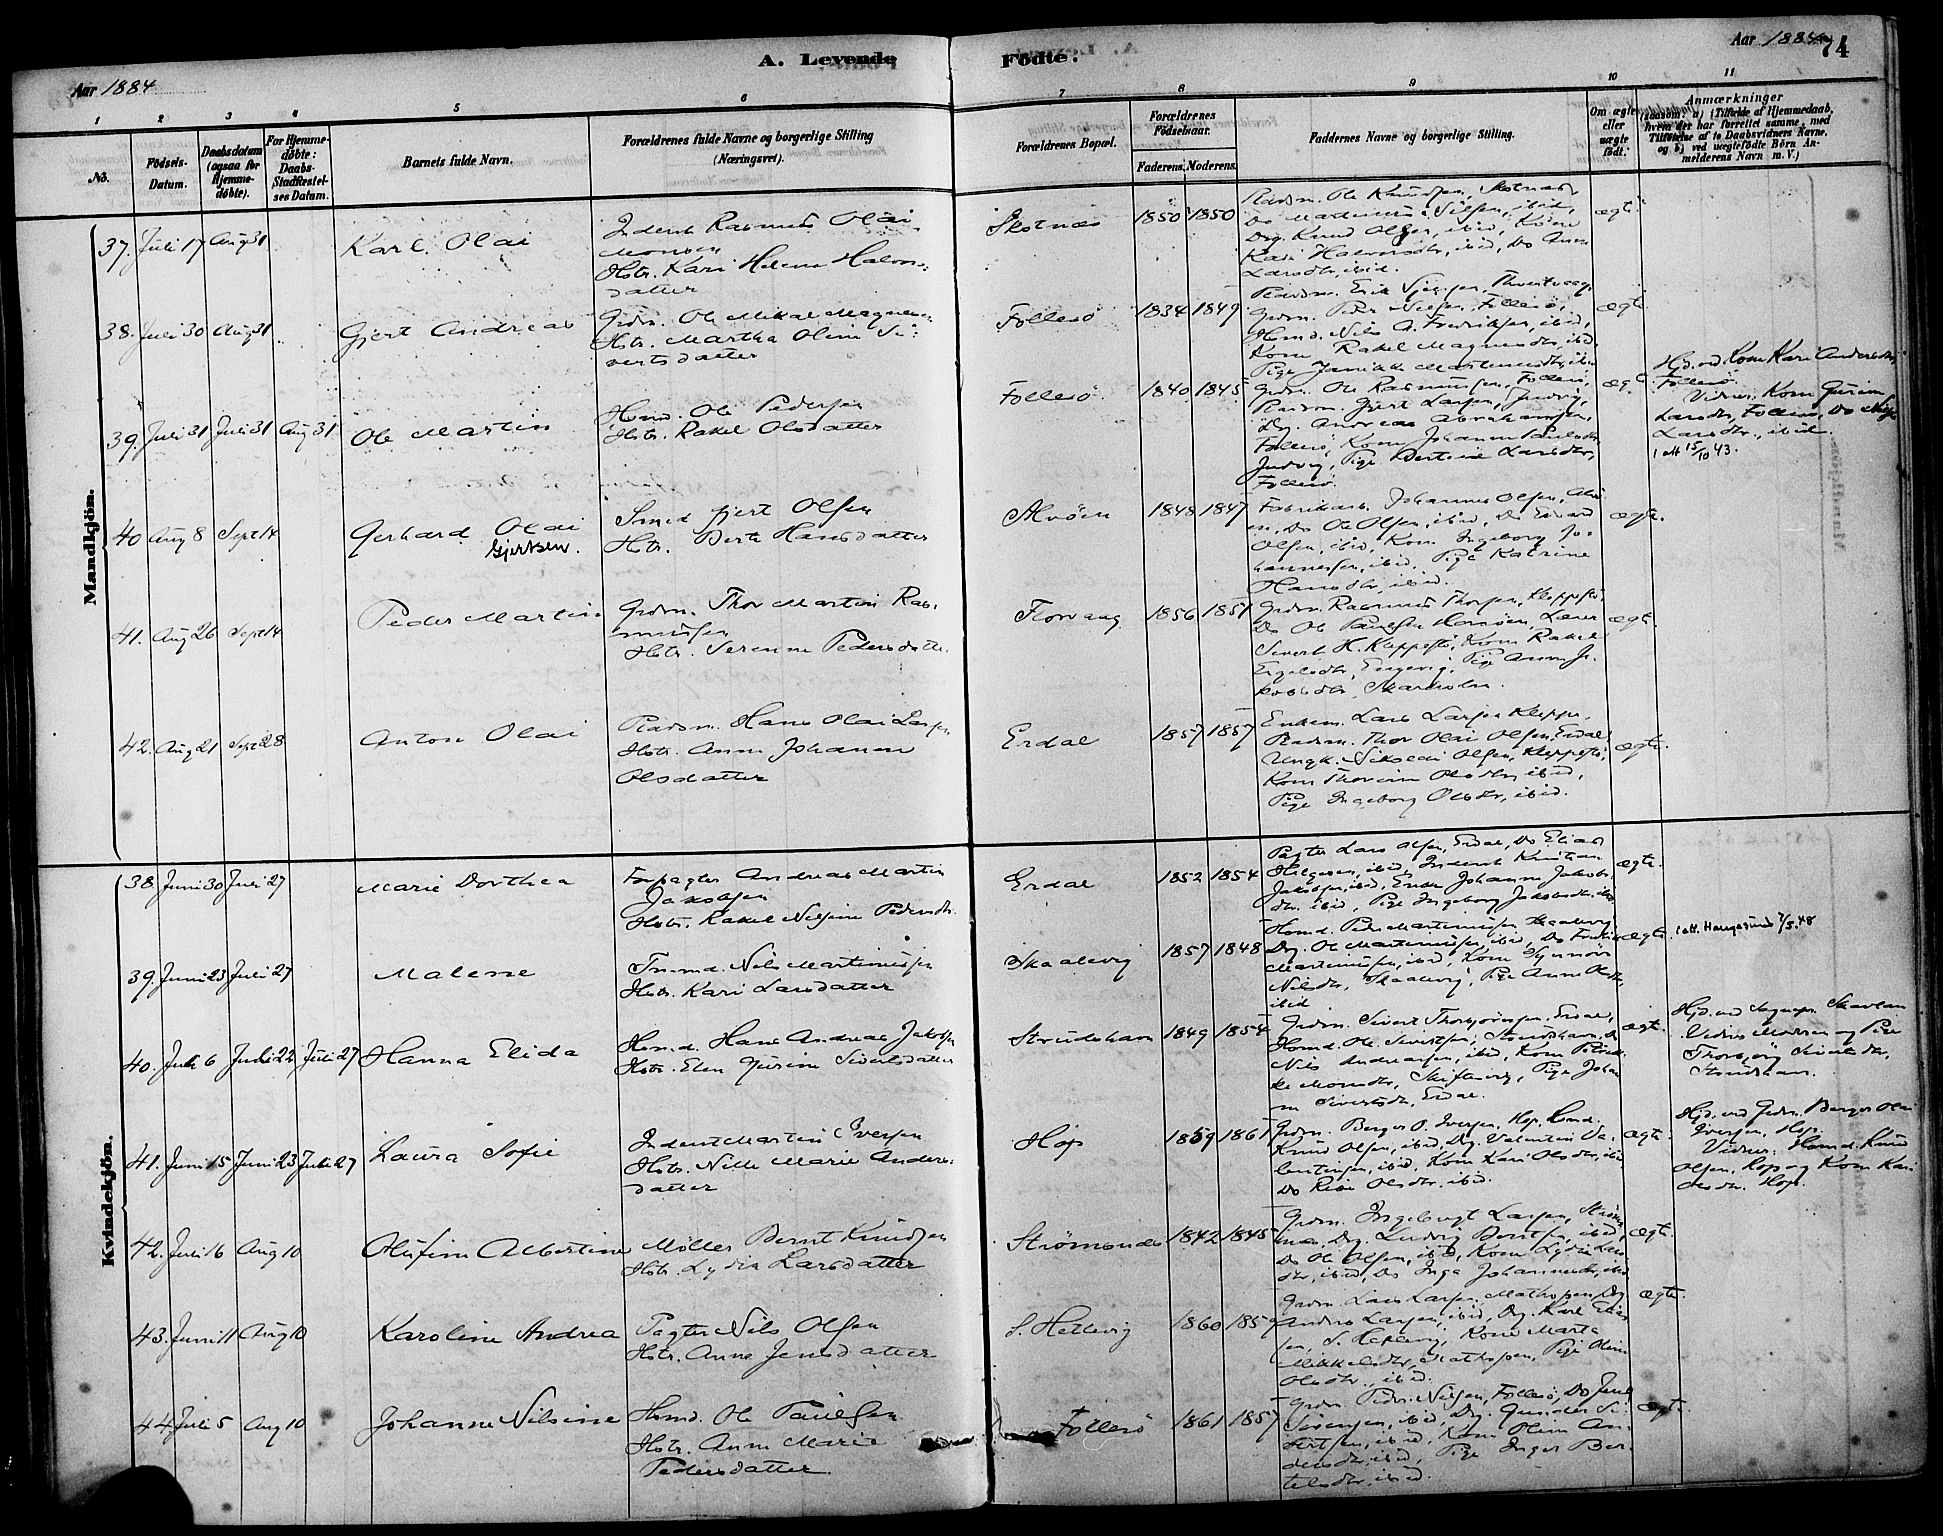 Aar 1884
A. Levende
Fødte.
Aar 1884
74
1 2 3 4 5 6 7 8 9 10 11
No.
Fødsels-
Datum.
Daabsdatum
(ogsaa for
Hjemme-
døbte).
For Hjemme-
døbte:
Daabs-
Stadfæstel-
ses Datum.
Barnets fulde Navn.
Forældrenes fulde Navne og borgerlige Stilling
(Næringsvei).
Forældrenes Bopæl.
Forældrenes
Fødselsaar.
Faderens. Moderens.
Faddernes Navne og borgerlige Stilling.
Om ægte
eller
uægte
født.
Anmærkninger
(saasom: a) i Tilfælde af Hjemmedaab,
hvem der har forrettet samme, med
Tilføielse af to Daabsvidners Navne,
og b) ved uægtefødte Børn An-
melderens Navn m. V.)
Mandkjön.
37. Juli 17 Aug 31
Karl Olai
Inderst Rasmus Olai
Monsen
Hstr. Kari Helene Halvors-
datter
Skotnæs
1850 1850
Ole Knudsen, Skotnæs,
Do Martinus Nilsen, ibid,
Drg. Knud Olsen, ibid, Kone
Kari Halvorsdtr, ibid, Do Anna
Larsdtr, ibid.
ægte
38. Juli 30 Aug 31
Gjert Andreas
Grdm. Ole Mikal Magnesen
Hstr. Martha Oline Si-
vertsdatter
Follesö
1834 1849
Grdm. Peder Nilsen, Follesö,
Hsmd. Nils A. Fredriksen, ibid,
Kone Rakel Magnesdtr, ibid.
Pige
ægte
39. Juli 31 Juli 31 Aug 31
Ole Martin
Hsmd. Ole Pedersen
Hstr. Rakel Olsdatter
Follesö
1840 1845
Grdm. Ole Rasmussen, Follesö,
Gjert Larsen, Juvig,
Drg. Andreas Abrahamsen,
Follesö, Kone Johanne
Juvig, Pige Bertine Larsdtr,
Follesö.
ægte
Hjd. ved Kone Kari Andersdtr,
Follesö.
Vidner: Kone Gurine
Larsdtr, Follesö, Do
Larsdtr., ibid.
1 att 15/10 43.
40 Aug 8 Sept 14
Gerhard Olai
Gjertsen.
Smed Gjert Olsen
Hstr. Berte Hansdatter
Alvöen
1848 1847
Fabrikarb. Johannes Olsen, Alvö-
en, Do Ole Olsen, ibid, Do Edvard
Olsen, ibid, Kone Ingeborg Jo-
hannessen, ibid, Pige Katrine
Hansdtr, ibid.
ægte.
41. Aug 26 Sept 14
Peder Martin
Grdm. Thor Martin Ras-
mussen
Hstr. Serine Pedersdatter
Florvaag
1856 1851
Grdm. Rasmus Thorsen, Kleppestö,
Do Ole Paulsen Lærer
Sivert H. Kleppestö, Kone Rakel
Engelsdtr, Engevig, Pige Anna Ja-
kobsdtr,
ægte.
42. Aug 21 Sept 28
Anton Olai
Hans Olai Larsen
Hstr. Anne Johanne
Olsdatter
Erdal
1857 1857
Enkem. Lars Larsen Kleppe,
Thor Olai Olsen, Erdal
Ungk. Nikolai Olsen, Kleppestö,
Kone Thorine Olsdtr, ibid,
Pige Ingeborg Olsdtr, ibid.
ægte.
Kvindekjön.
38. Juni 30 Juli 27
Marie Dorthea
Forpagter Andreas Martin
Jakobsen
Hstr. Rakel Nilsine Pedersdtr.
Erdal
1852 1854
Pagter Lars Olsen, Erdal, Do Elias
Helgesen, ibid, Inderst Kristian
Jakobsen, ibid, Enke Johanne Jakobs-
dtr, ibid, Pige Ingeborg Jakobsdtr, ibid
ægte.
39. Juni 23 Juli 27
Malene
Nils Martinussen
Hstr. Kari Larsdatter
Skaalevig
1857 1848
Hsmd. Peder Martinussen Skaalevig,
Drg. Ole Martinussen, ibid, Do
Martinussen, ibid, Kone
Nilsdtr, Skaalevig, Pige Anne Olsdtr,
ibid
ægte.
1 att. Haugesund 7/5.48
40. Juli 6 Juli 22 Juli 27
Hanna Elida
Hsmd. Hans Andreas Jakobsen
Hstr. Elen Gurine Sivertsdatter
Strudshavn
1849 1854
Grdm. Sivert Thorbjörnsen, Erdal,
Hsmd. Ole Sivertsen, Strudshavn, Do
Nils Andreassen, ibid, Kone
Monsdtr, Skiftesvig, Pige Johan-
ne Sivertsdtr, Erdal.
ægte.
Hjd. ved Skavlan
Vidner Moderen og Pige
Thorbjörg Sivertsdtr,
Strudshavn.
41. Juni 15 Juni 23 Juli 27
Laura Sofie
Inderst Martin Iversen
Hstr. Nille Marie Anders-
datter
Hop
1859 1861
Grdm. Berger O. Iversen, Hop, Hsmd.
Knud Olsen, ibid, Drg. Valentin Va-
lentinsen, ibid, Kone Kari Olsdtr, ibid
Do Olsdtr. ibid.
ægte.
Hjd. ved Grdm. Berger Olai
Iversen, Hop.
Vidner: Hsmd. Knud
Olsen, Hop og Kone Kari
Olsdtr. Hop.
42. Juli 16 Aug 10
Olufine Albertine
Möller Bernt Knudsen
Hstr. Lydia Larsdatter
Strömsnæs
1842 1845
Grdm. Ingebrigt Larsen, Ströms-
næs, Drg. Ludvig Berntsen, ibid,
Do Ole Olsen, ibid, Kone Lydia Lars-
dtr, ibid, Do Inga Johannesdtr, ibid
ægte.
43. Juni 11 Aug 10
Karoline Andrea
Pagter Nils Olsen
Hstr. Anna Jensdatter
S. Hetlevig
1860 1859
Grdm. Lars Larsen Mathopen, Drg
Anders Larsen, ibid, Drg. Karl Elias-
sen, S. Hetlevig, Kone Marta
Mikkelsdtr, Mathopen, Pige Oline
Olsdtr., ibid.
ægte.
44 Juli 5 Aug 10
Johanne Nilsine
Hsmd. Ole Paulsen
Hstr. Anne Marie
Pedersdatter.
Follesö
1861 1857
Grdm. Peder Nilsen, Follesö, Do
Sörensen, ibid, Drg. Gunder Si-
vertsen, ibid, Kone Oline An-
dersdtr, ibid, Pige Inger Ber-
telsdtr, ibid.
ægte.